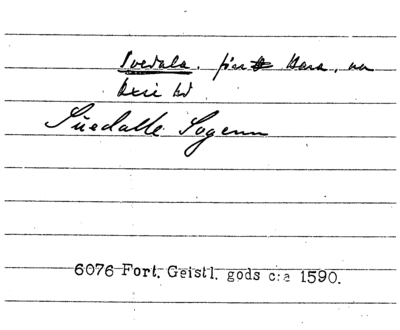 Svedala. förr Bara, nu
Oxie hd
Suedalle Sogenn
6076 Fort. Geistl. gods c:a 1590.